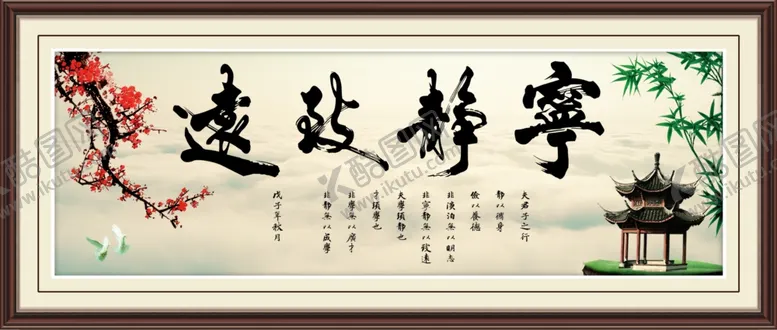 寧靜致遠
夫君子之行
靜以脩身
儉以養德
非澹泊無以明志
非寧靜無以致遠
夫學須靜也
才須學也
非學無以廣才
非靜無以成學
戊子年秋月
酷图网
www.ikutu.com